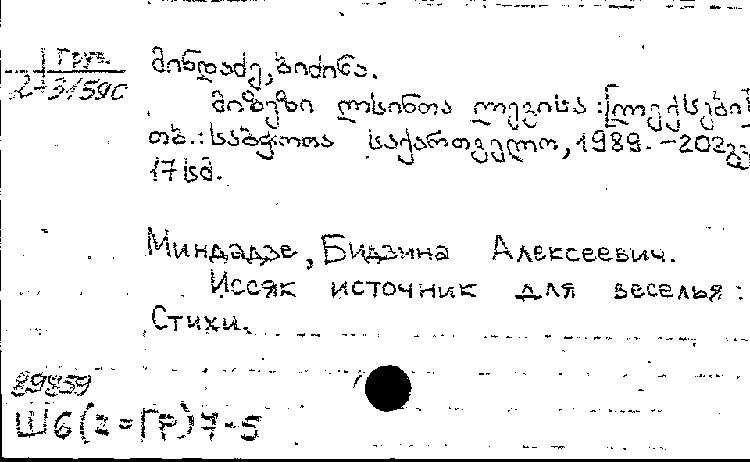 Груз
2-3/59с
მინდაძე, ბიძინა.
მიზეზი ლხინთა ლევისა :[ლექსები]
თბ.: საბჭოთა საქართველო, 1989. -202გვ
17 სმ.
Миндадзе, Бидзина Алексеевич.
Иссяк источник для веселья :
Стихи.
89859
Ш6(2=ГР)7-5